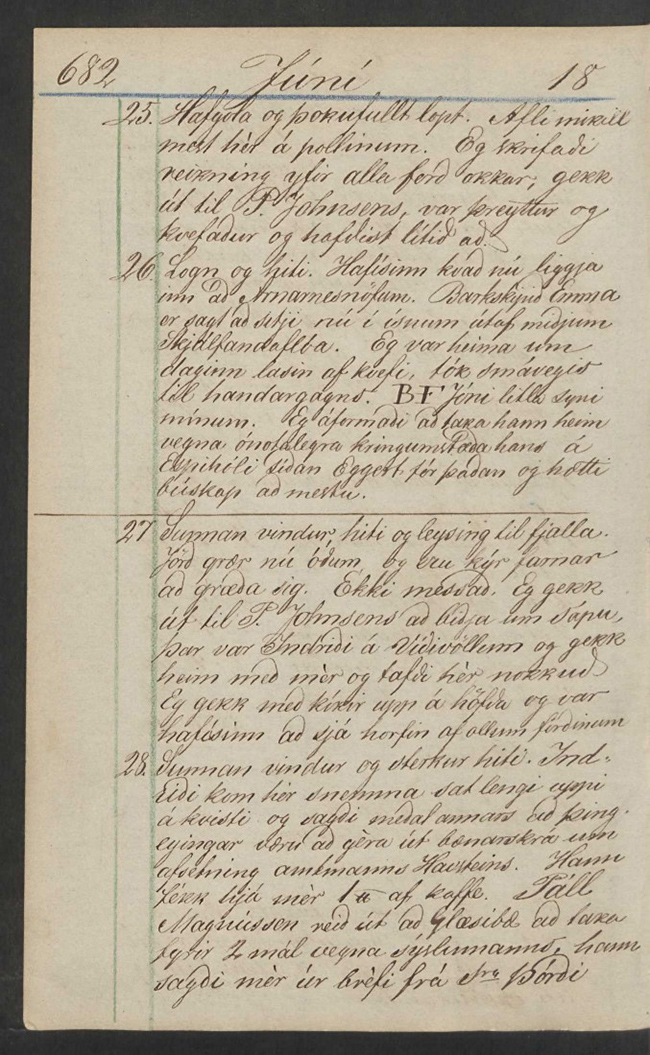 682 Júní 18
25. Hafgola og þokufullt lopt. Afli mikill
mest hèr á pollinum. Eg skrifaði
reikning yfir alla ferð okkar, gekk
út til P. Johnsens, var þreyttur og
kvefaður og hafðist lítið að.
26. Logn og hiti. Hafísinn kvað nú liggja
inn að Arnarnesnöfum. Barkskipið Emma
er sagt að sitji nú í ísnum útaf miðjum
Skjálfandaflóa. Eg var heima um
daginn lasin af kvefi, tók smávegis
til handargagns. BF Jóni litla syni
mínum. Eg áformaði að taka hann heim
vegna ónotalegra kringumstæða hans á
Espihóli síðan Eggert fór þaðan og hætti
búskap að mestu.
27 Sunnan vindur, hiti og leysing til fjalla.
Jörð grær nú óðum, og eru kýr farnar
að græða sig. Ekki messað. Eg gekk
út til P. Johnsens að biðja um sápu,
þar var Indriði á Víðivöllum og gekk
heim með mèr og tafði hèr nokkuð
Eg gekk með kíkir upp á höfða og var
hafísinn að sjá horfin af ollum firðinum
28. Sunnan vindur og sterkur hiti. Ind-
riði kom hèr snemma sat lengi uppi
á kvisti og sagði meðal annars að þing-
eyingar væru að gèra út bænarskrá um
afsetning amtmanns Havsteins. Hann
fékk hjá mèr 1 ℔ af kaffe. Páll
Magnússon reið út að Glæsibæ að taka
fyrir 2 mál vegna syslumanns, hann
sagði mèr úr brèfi frá Sra Þórði